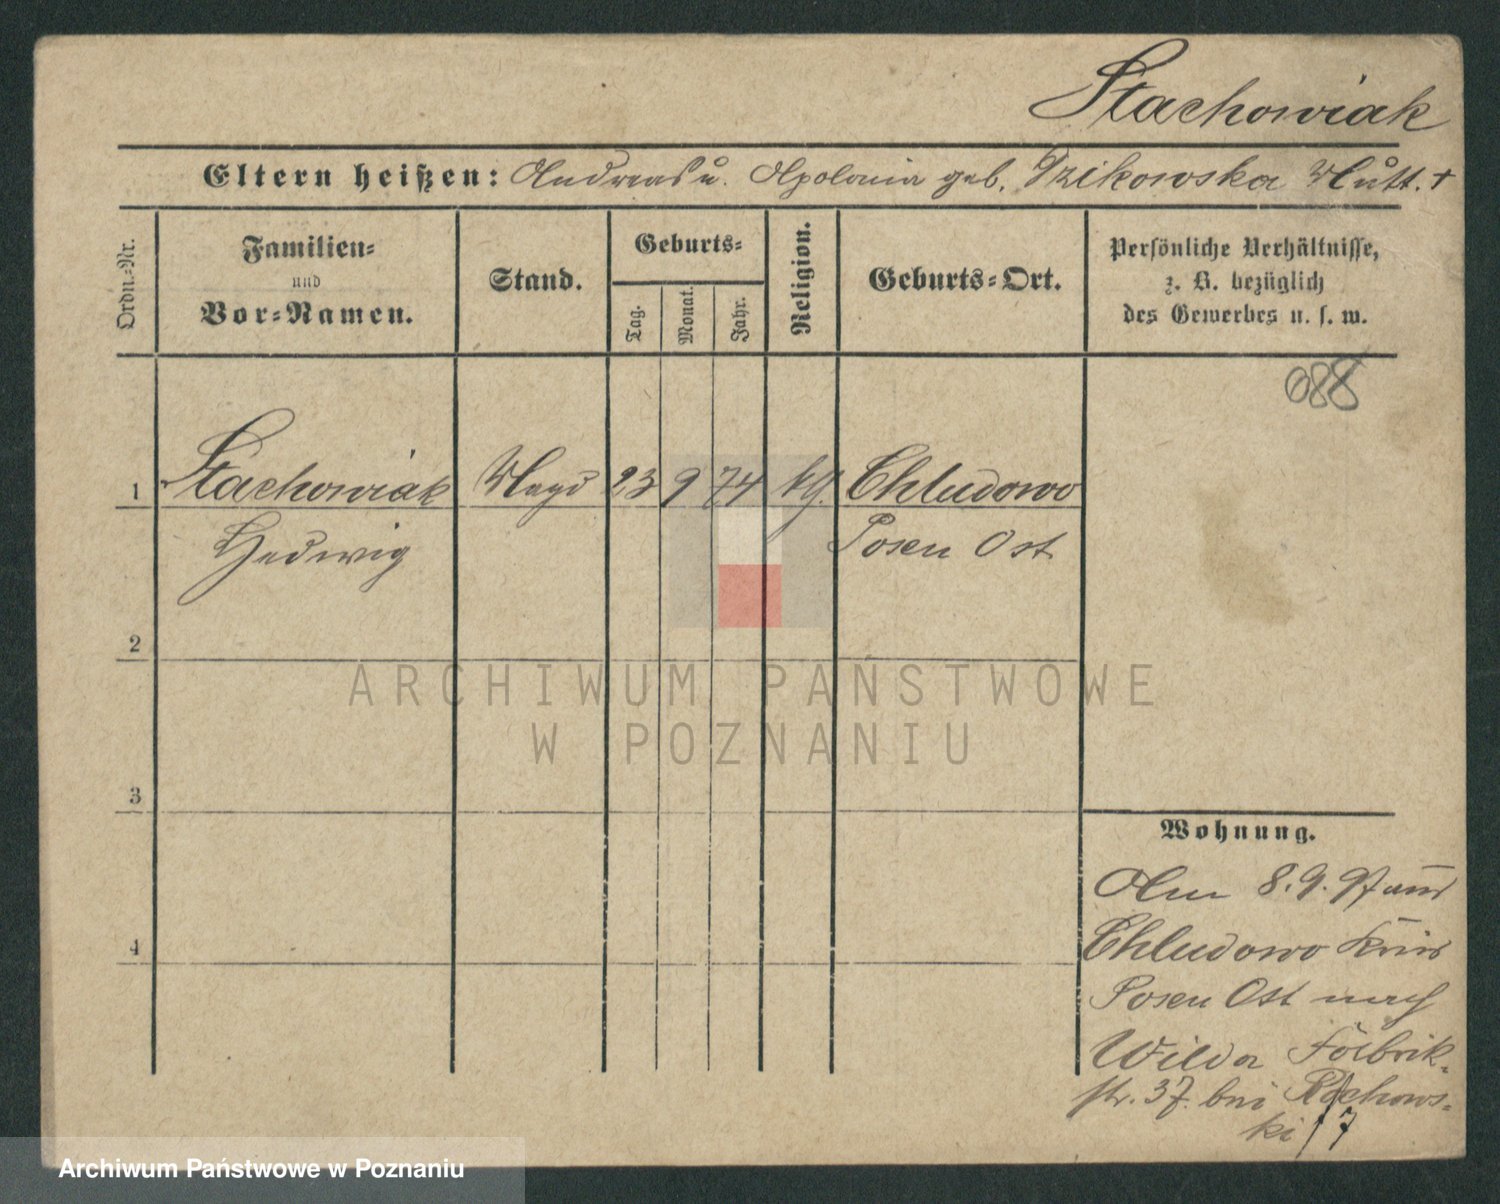 Stachowiak
Eltern heißen: Andreas u. Apolonia geb. Dzikowska Mutt. +
Ordn.-Nr.
Familien-
und
Vor-Namen.
Stand.
Geburts-
Tag.
Monat.
Jahr.
Religion.
Geburts-Ort.
Persönliche Verhältnisse,
z. B. bezüglich
des Gewerbes u. s. w.
088
1 Stachowiak Magd 23 9 74 kg. Chludowo
Hedwig Posen Ost
2
3
4
Wohnung.
Am 8.9.97 aus
Chludowo Kreis
Posen Ost nach
Wilda Fabrik-
str. 37. bei
ki
ARCHIWUM PAŃSTWOWE
W POZNANIU
Archiwum Państwowe w Poznaniu